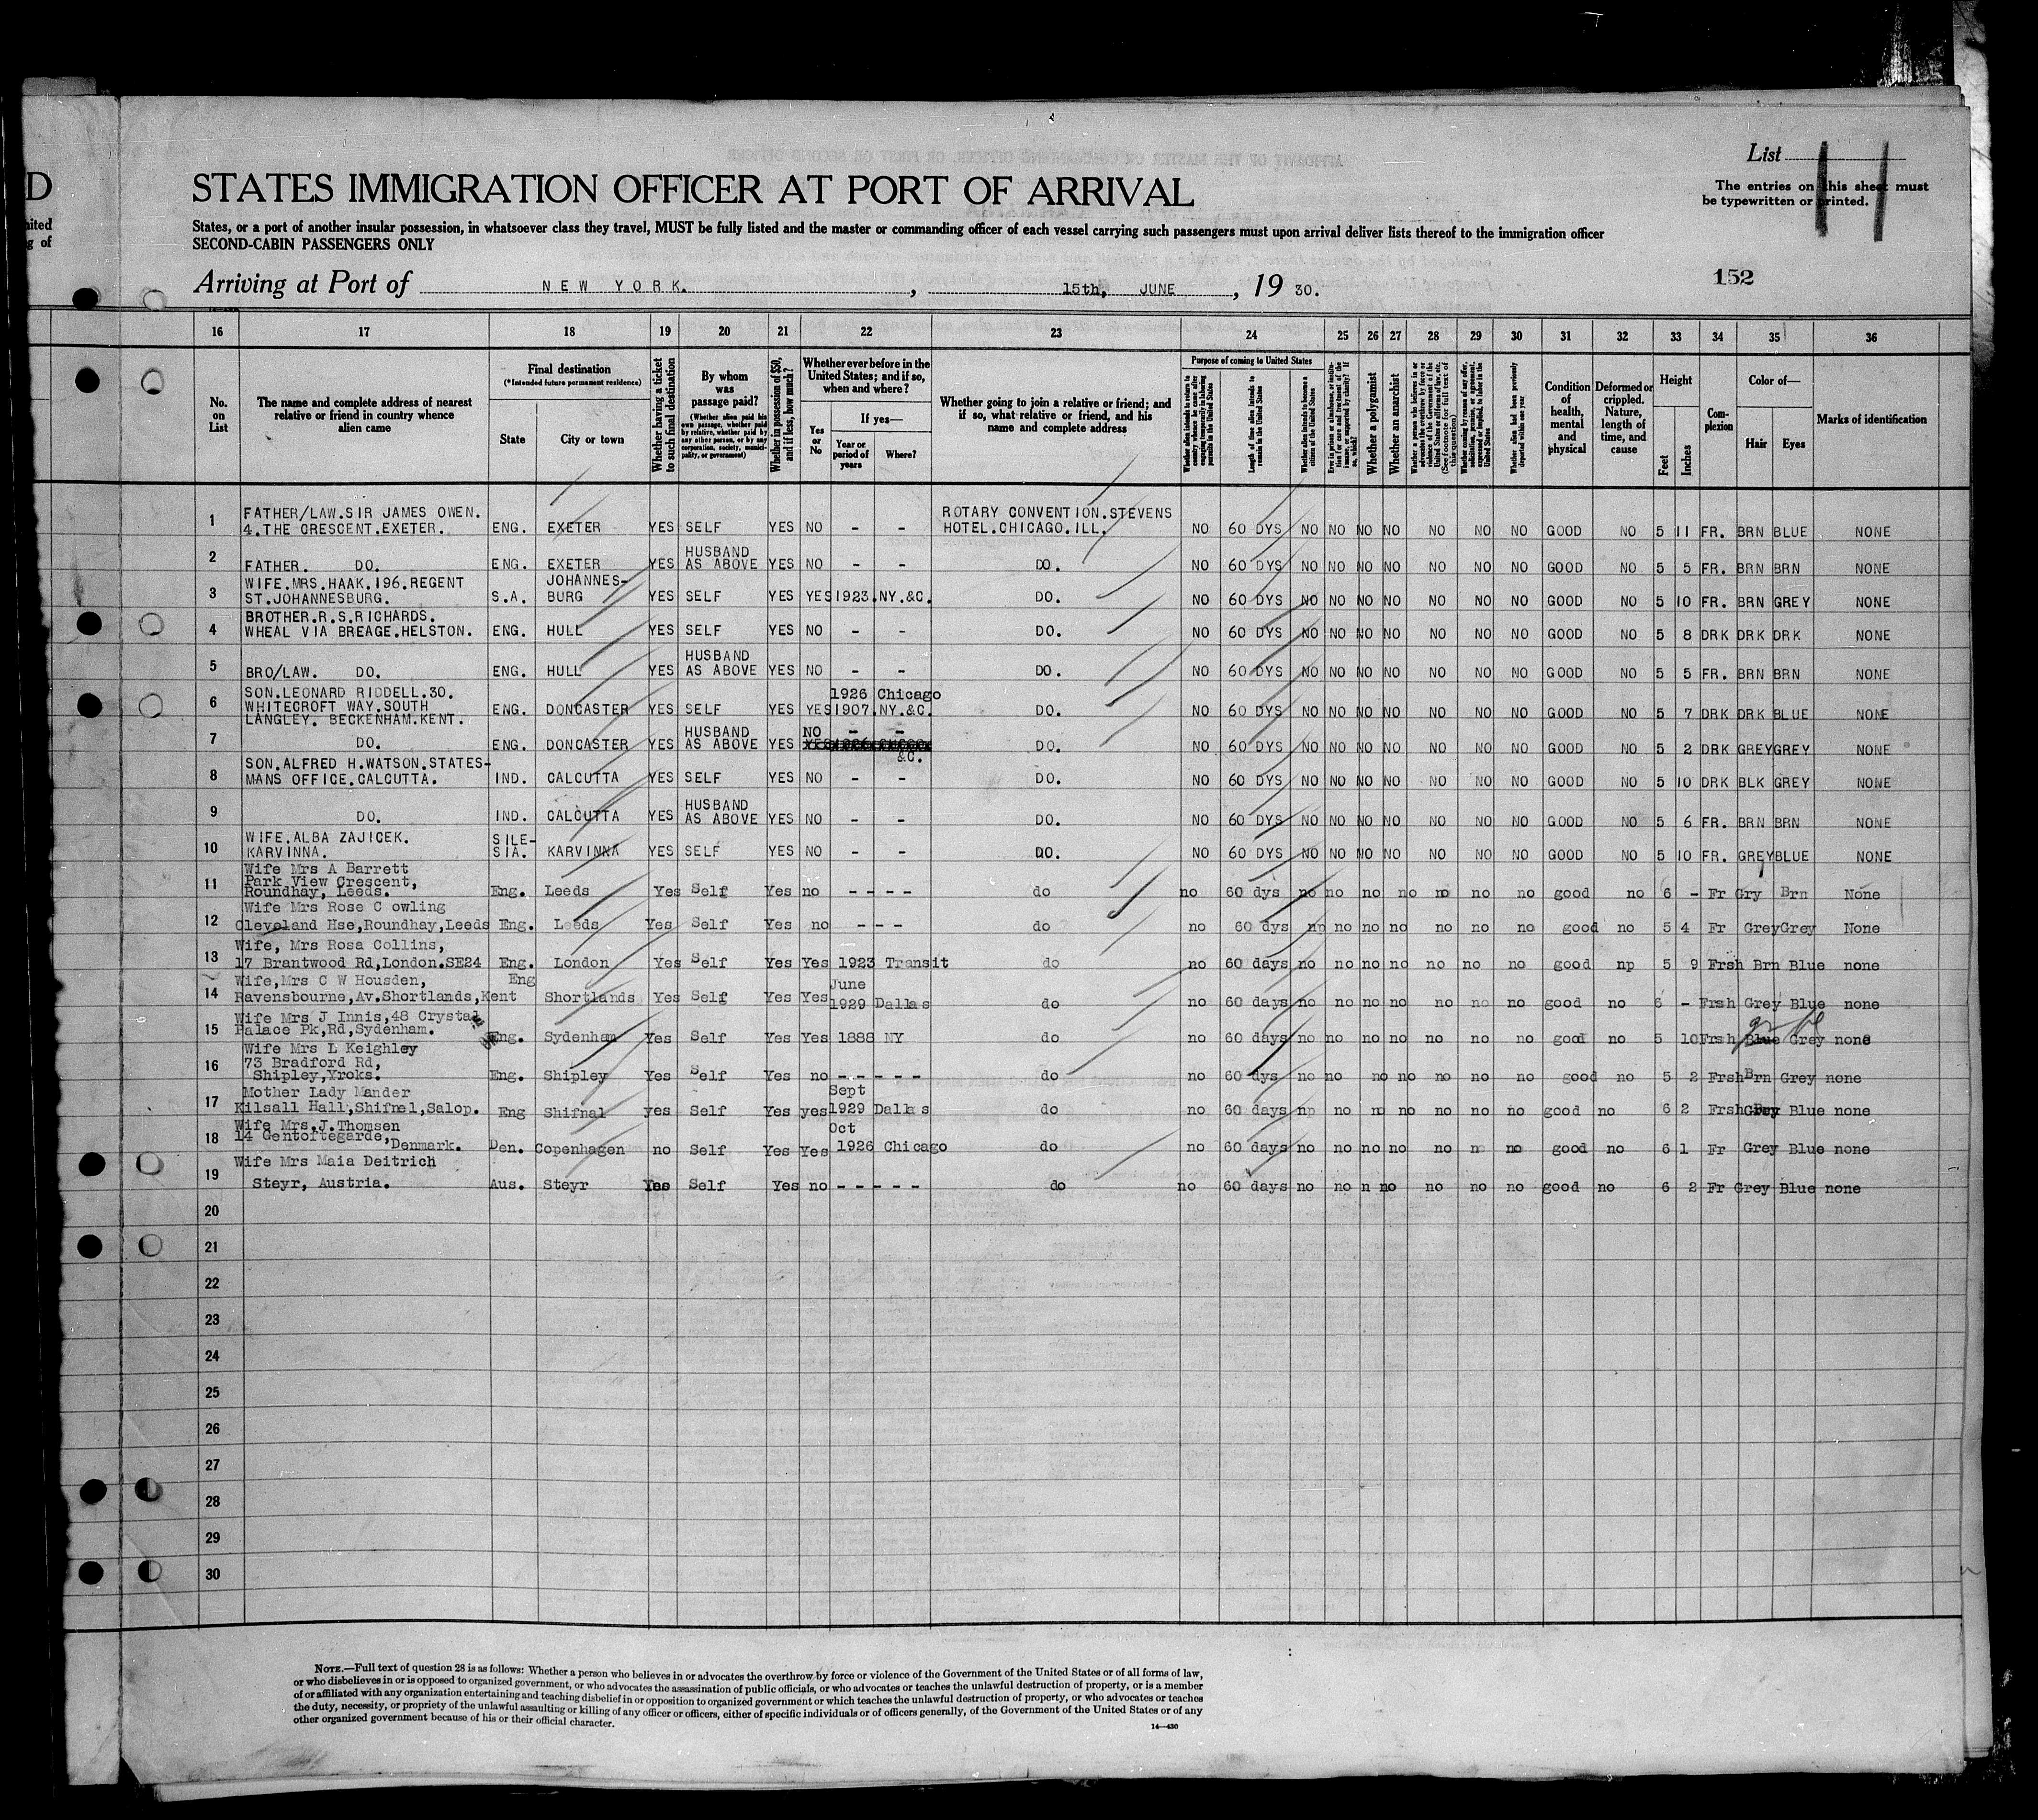 D
nited
g of
List
11
The entries on this sheet must
be typewritten or printed.
STATES IMMIGRATION OFFICER AT PORT OF ARRIVAL
States, or a port of another insular possession, in whatsoever class they travel, MUST be fully listed and the master or commanding officer of each vessel carrying such passengers must upon arrival deliver lists thereof to the immigration officer
SECOND-CABIN PASSENGERS ONLY
152
Arriving at Port of NEW YORK. , 15th, JUNE , 19 30.
16 17 18 19 20 21 22 23 24 25 26 27 28 29 30 31 32 33 34 35 36
No. on List
The name and complete address of nearest relative or friend in country whence alien came
Final destination
(*Intended future permanent residence)
State
City or town
Whether having a ticket to such final destination
By whom was passage paid?
(Whether alien paid his own passage, whether paid by relative, whether paid by any other person, or by any corporation, society, municipality, or government)
Whether in possession of $50, and if less, how much?
Whether ever before in the United States; and if so, when and where?
Yes or No
If yes—
Year or period of years
Where?
Whether going to join a relative or friend; and if so, what relative or friend, and his name and complete address
Purpose of coming to United States
Whether alien intends to return to country whence he came after engaging temporarily in laboring pursuits in the United States
Length of time alien intends to remain in the United States
Whether alien intends to become a citizen of the United States
Ever in prison or almshouse, or institution for care and treatment of the insane, or supported by charity? If so, which?
Whether a polygamist
Whether an anarchist
Whether a person who believes in or advocates the overthrow by force or violence of the Government of the United States or all forms of law, etc. (See footnote for full text of this question)
Whether coming by reason of any offer, solicitation, promise, or agreement, expressed or implied, to labor in the United States
Whether alien had been previously deported within one year
Condition of health, mental and physical
Deformed or crippled. Nature, length of time, and cause
Height
Feet
Inches
Complexion
Color of—
Hair
Eyes
Marks of identification
FATHER/LAW.SIR JAMES OWEN.
ROTARY CONVENTION.STEVENS
1 4.THE CRESCENT.EXETER. ENG. EXETER YES SELF YES NO - - HOTEL.CHICAGO.ILL. NO 60 DYS NO NO NO NO NO NO NO GOOD NO 5 11 FR. BRN BLUE NONE
HUSBAND
2 FATHER. DO. ENG. EXETER YES AS ABOVE YES NO - - DO. NO 60 DYS NO NO NO NO NO NO NO GOOD NO 5 5 FR. BRN BRN NONE
WIFE.MRS.HAAK.196.REGENT JOHANNES-
3 ST.JOHANNESBURG. S.A. BURG YES SELF YES YES 1923.NY.&C. DO. NO 60 DYS NO NO NO NO NO NO NO GOOD NO 5 10 FR. BRN GREY NONE
BROTHER.R.S.RICHARDS.
4 WHEAL VIA BREAGE.HELSTON. ENG. HULL YES SELF YES NO - - DO. NO 60 DYS NO NO NO NO NO NO NO GOOD NO 5 8 DRK DRK DRK NONE
HUSBAND
5 BRO/LAW. DO. ENG. HULL YES AS ABOVE YES NO - - DO. NO 60 DYS NO NO NO NO NO NO NO GOOD NO 5 5 FR. BRN BRN NONE
SON.LEONARD RIDDELL.30. 1926 Chicago
6 WHITECROFT WAY.SOUTH ENG. DONCASTER YES SELF YES YES 1907.NY.&C. DO. NO 60 DYS NO NO NO NO NO NO NO GOOD NO 5 7 DRK DRK BLUE NONE
LANGLEY. BECKENHAM.KENT.
HUSBAND NO - -
7 DO. ENG. DONCASTER YES AS ABOVE YES DO. NO 60 DYS NO NO NO NO NO NO NO GOOD NO 5 2 DRK GREY GREY NONE
&C.
SON.ALFRED H.WATSON.STATES-
8 MANS OFFICE.CALCUTTA. IND. CALCUTTA YES SELF YES NO - - DO. NO 60 DYS NO NO NO NO NO NO NO GOOD NO 5 10 DRK BLK GREY NONE
HUSBAND
9 DO. IND. CALCUTTA YES AS ABOVE YES NO - - DO. NO 60 DYS NO NO NO NO NO NO NO GOOD NO 5 6 FR. BRN BRN NONE
WIFE.ALBA ZAJICEK. SILE-
10 KARVINNA. SIA. KARVINNA YES SELF YES NO - - DO. NO 60 DYS NO NO NO NO NO NO NO GOOD NO 5 10 FR. GREY BLUE NONE
Wife Mrs A Barrett
Park View Crescent,
11 Roundhay, Leeds. Eng. Leeds Yes Self Yes no - - - - do no 60 dys no no no no no no no good no 6 - Fr Gry Brn None
Wife Mrs Rose C owling
12 Cleveland Hse,Roundhay,Leeds Eng. Leeds Yes Self Yes no - - - do no 60 dys np no no no no no no good no 5 4 Fr Grey Grey None
Wife, Mrs Rosa Collins,
13 17 Brantwood Rd,London.SE24 Eng. London Yes Self Yes Yes 1923 Transit do no 60 days no no no no no no no good np 5 9 Frsh Brn Blue none
Wife,Mrs C W Housden, Eng June
14 Ravensbourne,Av.Shortlands,Kent Shortlands Yes Self Yes Yes 1929 Dallas do no 60 days no no no no no no no good no 6 - Frsh Grey Blue none
Wife Mrs J Innis,48 Crystal
gr bl
15 Palace Pk,Rd,Sydenham. Eng. Sydenham Yes Self Yes Yes 1888 NY do no 60 days no no no no no no no good no 5 10 Frsh Blue Grey none
Wife Mrs L Keighley
73 Bradford Rd,
16 Shipley,Yroks. Eng. Shipley Yes Self Yes no - - - - - do no 60 dys no no no no no no no good no 5 2 Frsh Brn Grey none
Mother Lady Mander Sept
17 Kilsall Hall,Shifnel,Salop. Eng Shifnal yes Self Yes yes 1929 Dallas do no 60 days np no no no no no no good no 6 2 Frsh Blue none
Wife Mrs,J.Thomsen Oct
18 14 Gentoftegarde,Denmark. Den. Copenhagen no Self Yes Yes 1926 Chicago do no 60 days no no no no no no no good no 6 1 Fr Grey Blue none
Wife Mrs Maia Deitrich
19 Steyr, Austria. Aus. Steyr Yes Self Yes no - - - - - do no 60 days no no n no no no no good no 6 2 Fr Grey Blue none
20
21
22
23
24
25
26
27
28
29
30
NOTE.—Full text of question 28 is as follows: Whether a person who believes in or advocates the overthrow by force or violence of the Government of the United States or of all forms of law,
or who disbelieves in or is opposed to organized government, or who advocates the assassination of public officials, or who advocates or teaches the unlawful destruction of property, or is a member
of or affiliated with any organization entertaining and teaching disbelief in or opposition to organized government or which teaches the unlawful destruction of property, or who advocates or teaches
the duty, necessity, or propriety of the unlawful assaulting or killing of any officer or officers, either of specific individuals or of officers generally, of the Government of the United States or of any
other organized government because of his or their official character.
14—430